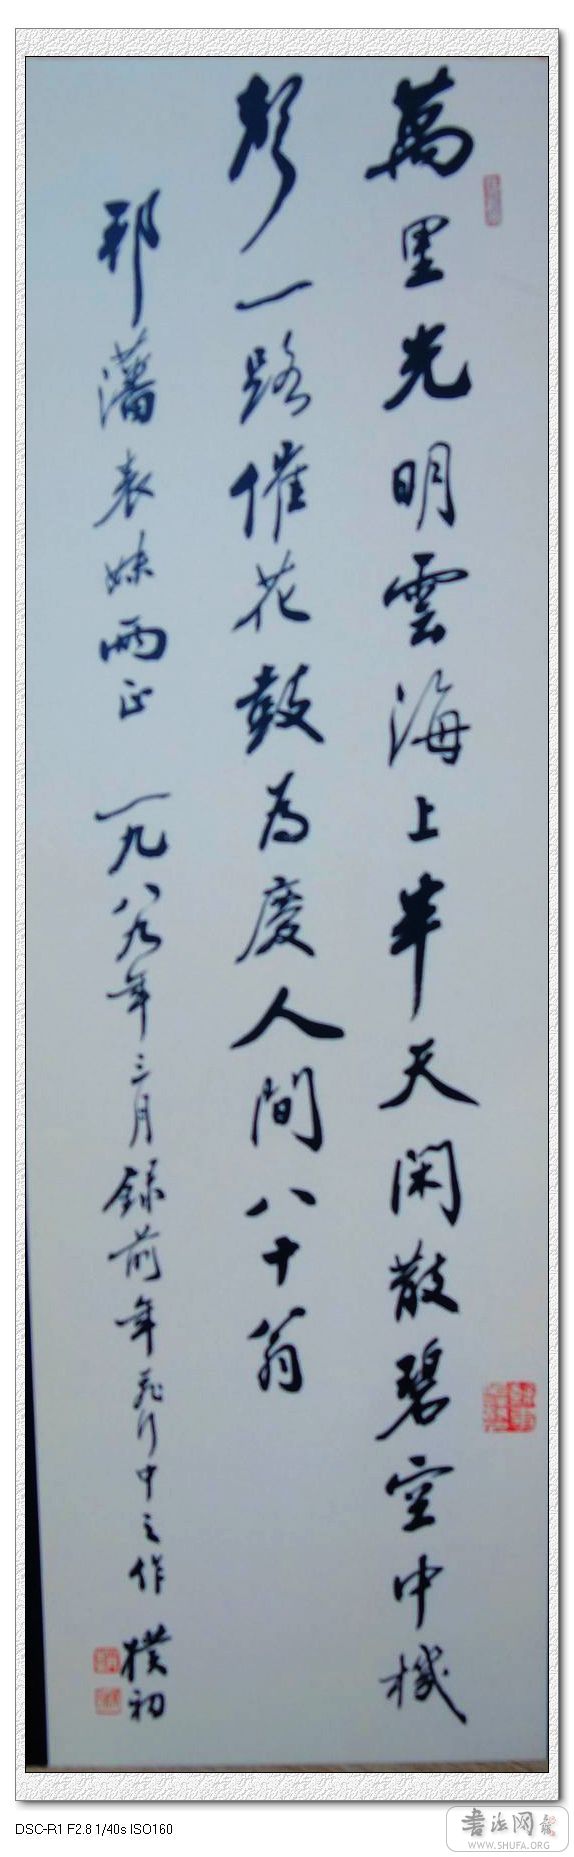 萬里光明雲海上半天閑散碧空中機
聲一路催花鼓為慶人間八十翁
邢藩表妹兩正 一九八九年三月錄前年飛行中之作 樸初
DSC-R1 F2.8 1/40s ISO160
書法网
WWW.SHUFA.ORG